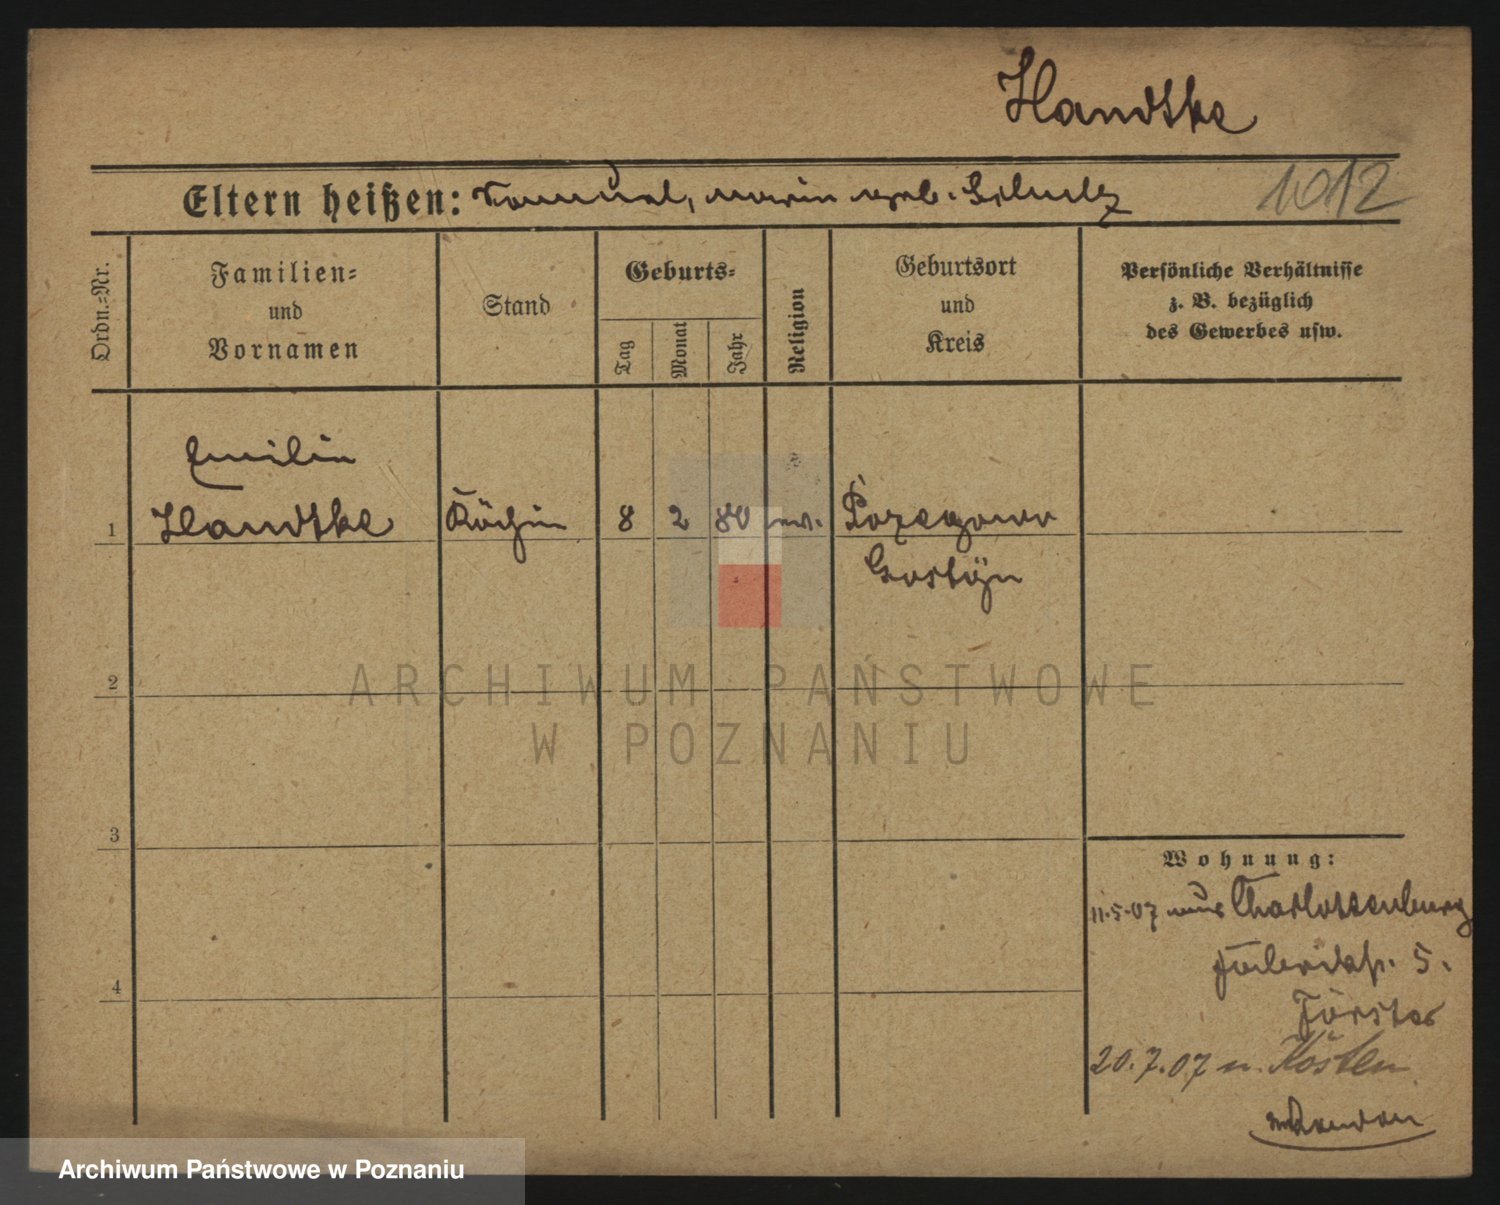 Handtke
Eltern heißen: Samuel, Marie geb. Schulz 1012
Ordn.=Nr.
Familien=
und
Vornamen
Stand
Geburts=
Tag
Monat
Jahr
Religion
Geburtsort
und
Kreis
Persönliche Verhältnisse
z. B. bezüglich
des Gewerbes usw.
Emilie
1 Handtke Köchin 8 2 80 ev. Pozegowo
Gostyn
2
3
4
Wohnung:
11.5.07 aus Charlottenburg
5.
Förster
20.7.07 n. Kosten
ARCHIWUM PAŃSTWOWE
W POZNANIU
Archiwum Państwowe w Poznaniu